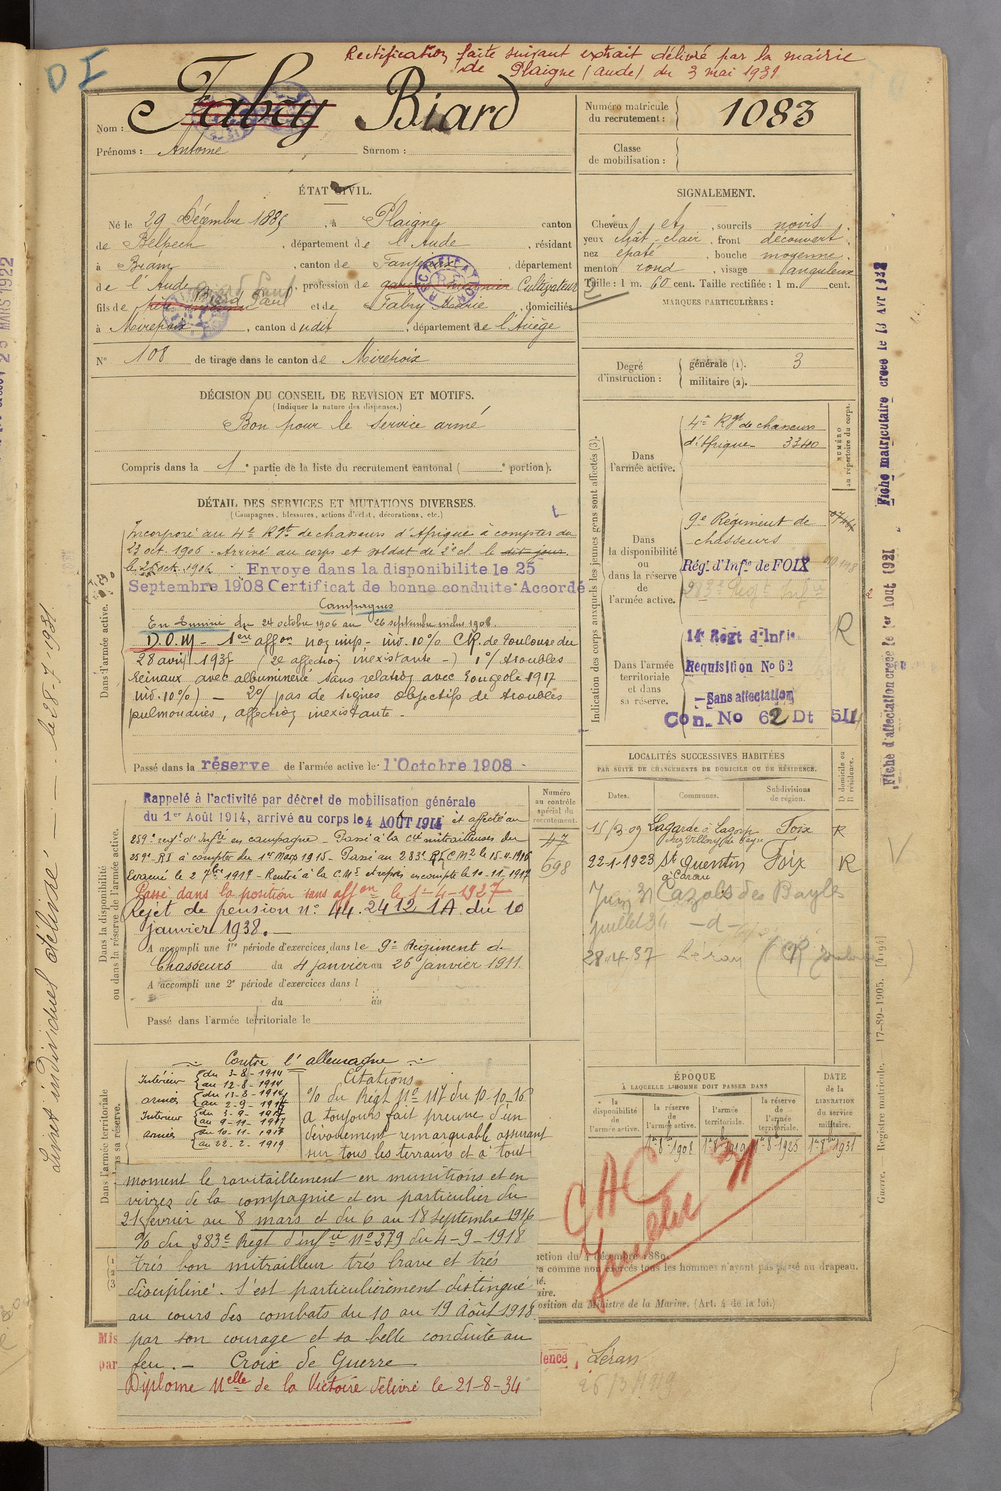 DI
Rectification faite suivant extrait délivré par la mairie
de Plaigne (Aude) du 3 mai 1931
Nom : Fabry Biard
Prénoms : Antoine Surnom :
Numéro matricule du recrutement : 1083
Classe de mobilisation :
ÉTAT CIVIL.
Né le 29 Décembre 1885, à Plaigne canton
de Belpech, département de l'Aude, résidant
à canton de Fanjeaux, département
de l'Aude, profession de Cultivateur
fils de Biard Paul et de Fabry Marie, domiciliés
à Mirepoix, canton dudit, département de l'Ariège
N° 108 de tirage dans le canton de Mirepoix
SIGNALEMENT.
Cheveux et, sourcils noirs.
yeux chât-clair, front découvert.
nez épaté, bouche moyenne.
menton rond, visage anguleux
Taille : 1 m. 60 cent. Taille rectifiée : 1 m. cent.
MARQUES PARTICULIÈRES :
Degré d'instruction : générale (1). 3
militaire (2).
DÉCISION DU CONSEIL DE REVISION ET MOTIFS.
(Indiquer la nature des dispenses.)
Bon pour le service armé
Compris dans la 1e partie de la liste du recrutement cantonal ( e portion).
DÉTAIL DES SERVICES ET MUTATIONS DIVERSES.
(Campagnes, blessures, actions d'éclat, décorations, etc.)
Dans l'armée active.
Incorporé au 4e Rgt de chasseurs d'Afrique à compter du
23 oct. 1906. Arrivé au corps et soldat de 2e cl. le dit jour.
le 25 oct. 1906 Envoyé dans la disponibilite le 25
Septembre 1908 Certificat de bonne conduite Accordé
Campagnes
En Tunisie du 24 octobre 1906 au 26 septembre inclus 1908.
D.O.M - 1ere affon non imp - inv. 10% CR. de Toulouse du
28 avril 1937 (2e affection inexistante -) 1°/ troubles
reinaux avec albuminerie sans relation avec rougeole 1917
inv. 10%) - 2°/ pas de signes objectifs de troubles
pulmonaires, affection inexistante -
Passé dans la réserve de l'armée active le 1er Octobre 1908 -
Indication des corps auxquels les jeunes gens sont affectés (3).
NUMÉRO au répertoire du corps.
Dans l'armée active. 4e Rgt de chasseurs
d'Afrique 3340
Dans la disponibilité ou dans la réserve de l'armée active.
9e Régiment de
chasseurs
Rég. d'Infie de FOIX
Dans l'armée territoriale et dans sa réserve.
14e Regt d'Infie R
Requisition No 62
- Sans affectation
Con. No 62 Dt 511
LOCALITÉS SUCCESSIVES HABITÉES
PAR SUITE DE CHANGEMENTS DE DOMICILE OU DE RÉSIDENCE.
Dates. Communes. Subdivisions de région. D domicile ou R résidence.
15/3 09 Lagarde Foix R
22-1-1923 St Quentin Foix R
Juin 31 Cazals des Bayles
juillet 34 -d-
28.4.37 Léran
Dans la disponibilité ou dans la réserve de l'armée active.
Numéro au contrôle spécial du recrutement.
47
698
Rappelé à l'activité par décret de mobilisation générale
du 1er Août 1914, arrivé au corps le 4 AOÛT 1914 et affecté au
259e régt d'Infie en campagne - Passé à la Cie mitrailleuses du
259e RI à compter du 1er Mars 1915 - Passé au 283e RI CM2 le 15-4-1916
Evacué le 2 7bre 1917 - Rentré à la C.M.
Passé dans la position sans affon le 1-4-1927
Rejet de pension n° 44.2412 1A du 10
janvier 1938. -
A accompli une 1re période d'exercices dans le 9e Régiment de
Chasseurs du 4 janvier au 26 janvier 1911.
A accompli une 2e période d'exercices dans l
du au
Passé dans l'armée territoriale le
Dans l'armée territoriale et dans sa réserve.
Contre l'allemagne
Intérieur du 3-8-1914
au 12-8-1914
armées du 13-8-1914
au 2-9-1917
Intérieur du 3-9-1917
au 9-11-1917
armées du 10-11-1917
au 22-2-1919
Citations
O/ du Régt N° 117 du 10-10-16
a toujours fait preuve d'un
dévouement remarquable assurant
sur tous les terrains et à tout
moment le ravitaillement en munitions et en
vivres de la compagnie et en particulier du
21 février au 8 mars et du 6 au 18 septembre 1916
O/ du 383e Regt d'infie N° 379 du 4-9-1918
très bon mitrailleur très brave et très
discipliné. S'est particulièrement distingué
au cours des combats du 10 au 19 Août 1918
par son courage et sa belle conduite au
feu. - Croix de Guerre
Diplome Melle de la Victoire délivré le 21-8-34
ÉPOQUE
À LAQUELLE L'HOMME DOIT PASSER DANS
la disponibilité de l'armée active. la réserve de l'armée active. l'armée territoriale. la réserve de l'armée territoriale.
DATE de la LIBÉRATION du service militaire.
1er 8bre 1908 1er 8bre 1925 1er 8bre 1931
CAC
Juillet 31
ction du 4 décembre 1889.
comme non exercés tous les hommes n'ayant pas passé au drapeau.
osition du Ministre de la Marine. (Art. 4 de la loi.)
Mis
par
dence, Léran
26/3/1939
Livret individuel délivré le 28-7-1931
25 MARS 1922
Fiche matriculaire créée le 13 Avr 1932
Fiche d'affectation créée le 1er Aout 1921
Guerre. Registre matricule. 17-89-1905. [4194]
RECTIFICATION